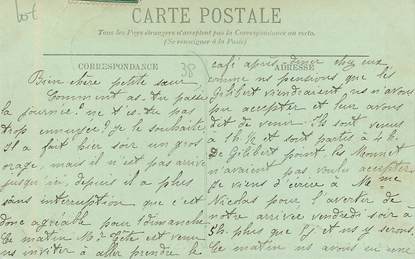 CARTE POSTALE
Tous les Pays étrangers n'acceptent pas la Correspondance au recto.
(Se renseigner à la Poste)
CORRESPONDANCE
ADRESSE
38
Bien chère petite sœur,
Comment as-tu passé
la journée? ne t'es-tu pas
trop ennuyée? je le souhaite,
Il a fait hier soir un gros
orage, mais il n'est pas arrivé
jusqu'ici, depuis il a plus
sans interruption que c'est
donc agréable pour 1 dimanche
Ce matin Mr est venu
ns inviter à aller prendre le
café après dîner chez eux
comme ns pensions que les
Gilibert viendraient ns n'avons
pu accepter et leur avons
dit de venir. Ils sont venus
à et sont partis à 4h.
De Gilibert point, les Monnet
n'avaient pas voulu accepter
je viens d'écrire à Me
Nicolas pour l'avertir de
notre arrivée vendredi soir à
5h. plus que 5j et ns y serons.
Ce matin ns avons eu une